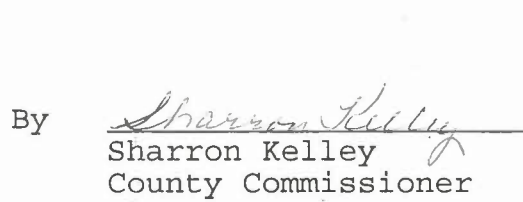 By Sharron Kelley
Sharron Kelley
County Commissioner